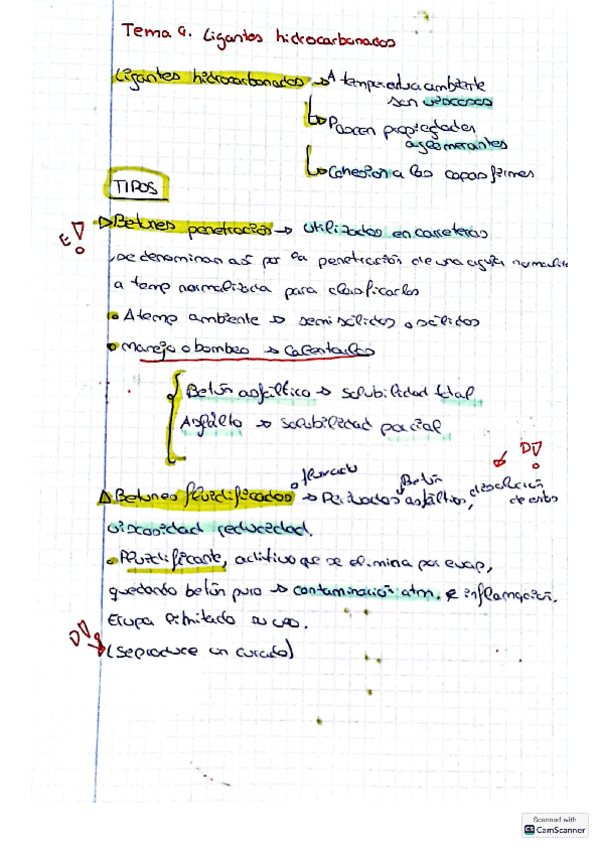 Tema 9. Ligantes hidrocarbonados
Ligantes hidrocarbonados → A temperatura ambiente
son viscosos
↳ Poseen propiedades
aglomerantes
↳ Cohesion a las capas firmes
TIPOS
E! ▷ Betunes penetración → Utilizados en carreteras
se denominan así por la penetración de una aguja normaliz
a temp normalizada para clasificarlos
• A temp ambiente → semisólidos o sólidos
• Manejo o bombeo → Calentarlos
Betún asfáltico → solubilidad total
Asfalto → solubilidad parcial
D!
o fluxado
Betún
▷ Betunes fluidificados → Derivados asfáltico, disolución
de estos
viscosidad reducidad.
• Fluidificante, aditivo que se elimina por evap,
quedando betún puro → contaminación atm. e inflamación.
Europa limitado su uso.
D! (Se produce un curado)
Scanned with
CS CamScanner